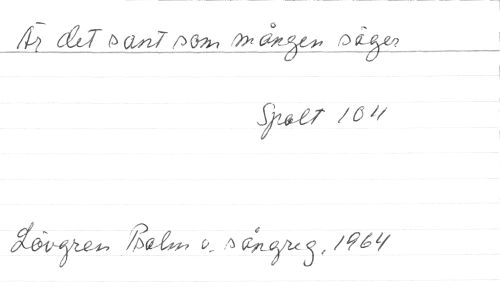 Är det sant som mången säger
Spalt 104
Lövgren Psalm o. sångreg. 1964